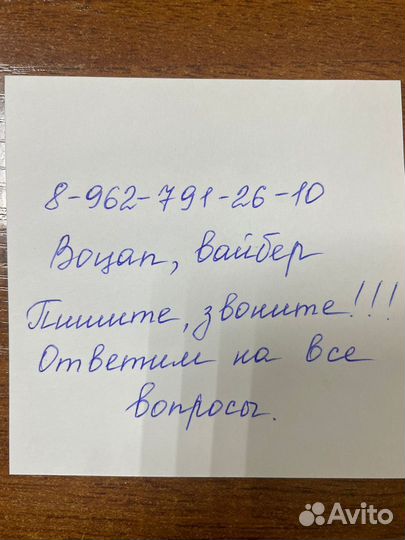 8-962-791-26-10
Воцап, вайбер
Пишите, звоните!!!
Ответим на все
вопросы.
Avito